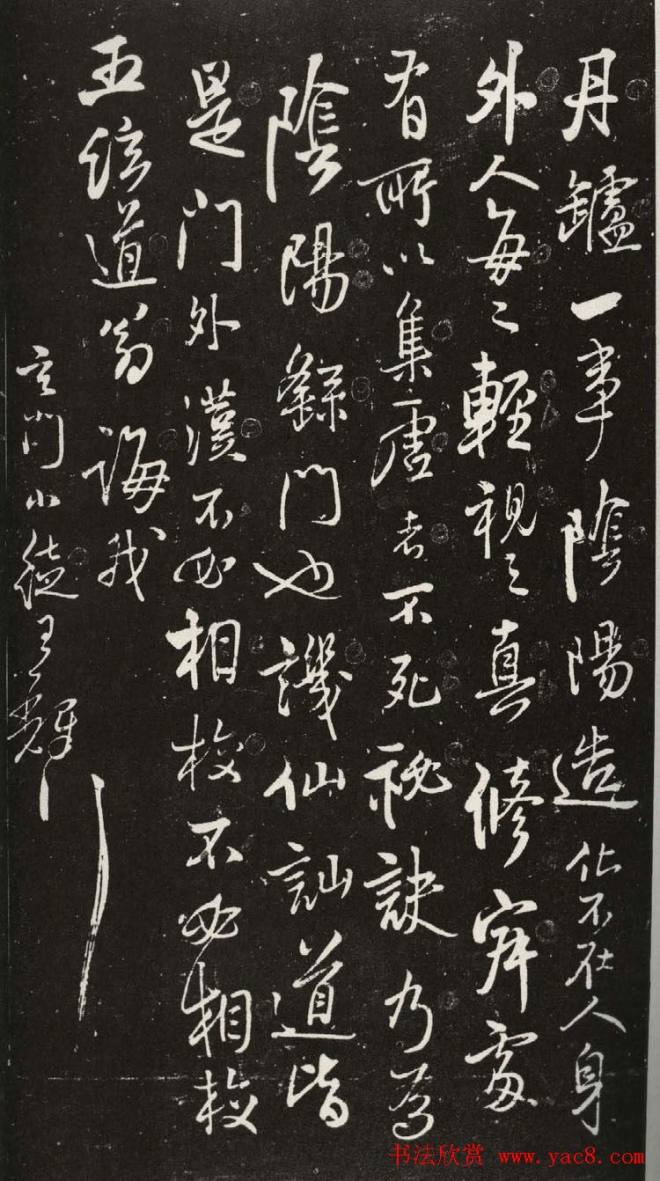 丹鑪一事陰陽造化不在人身
外人每々輕視之真修穽處
有所以集唐者不死秘訣乃為
陰陽繇門也譏仙訕道皆
是門外漢不必相校不必相校
玉絃道翁誨我
玄門小徒王輝
书法欣赏 www.yac8.com